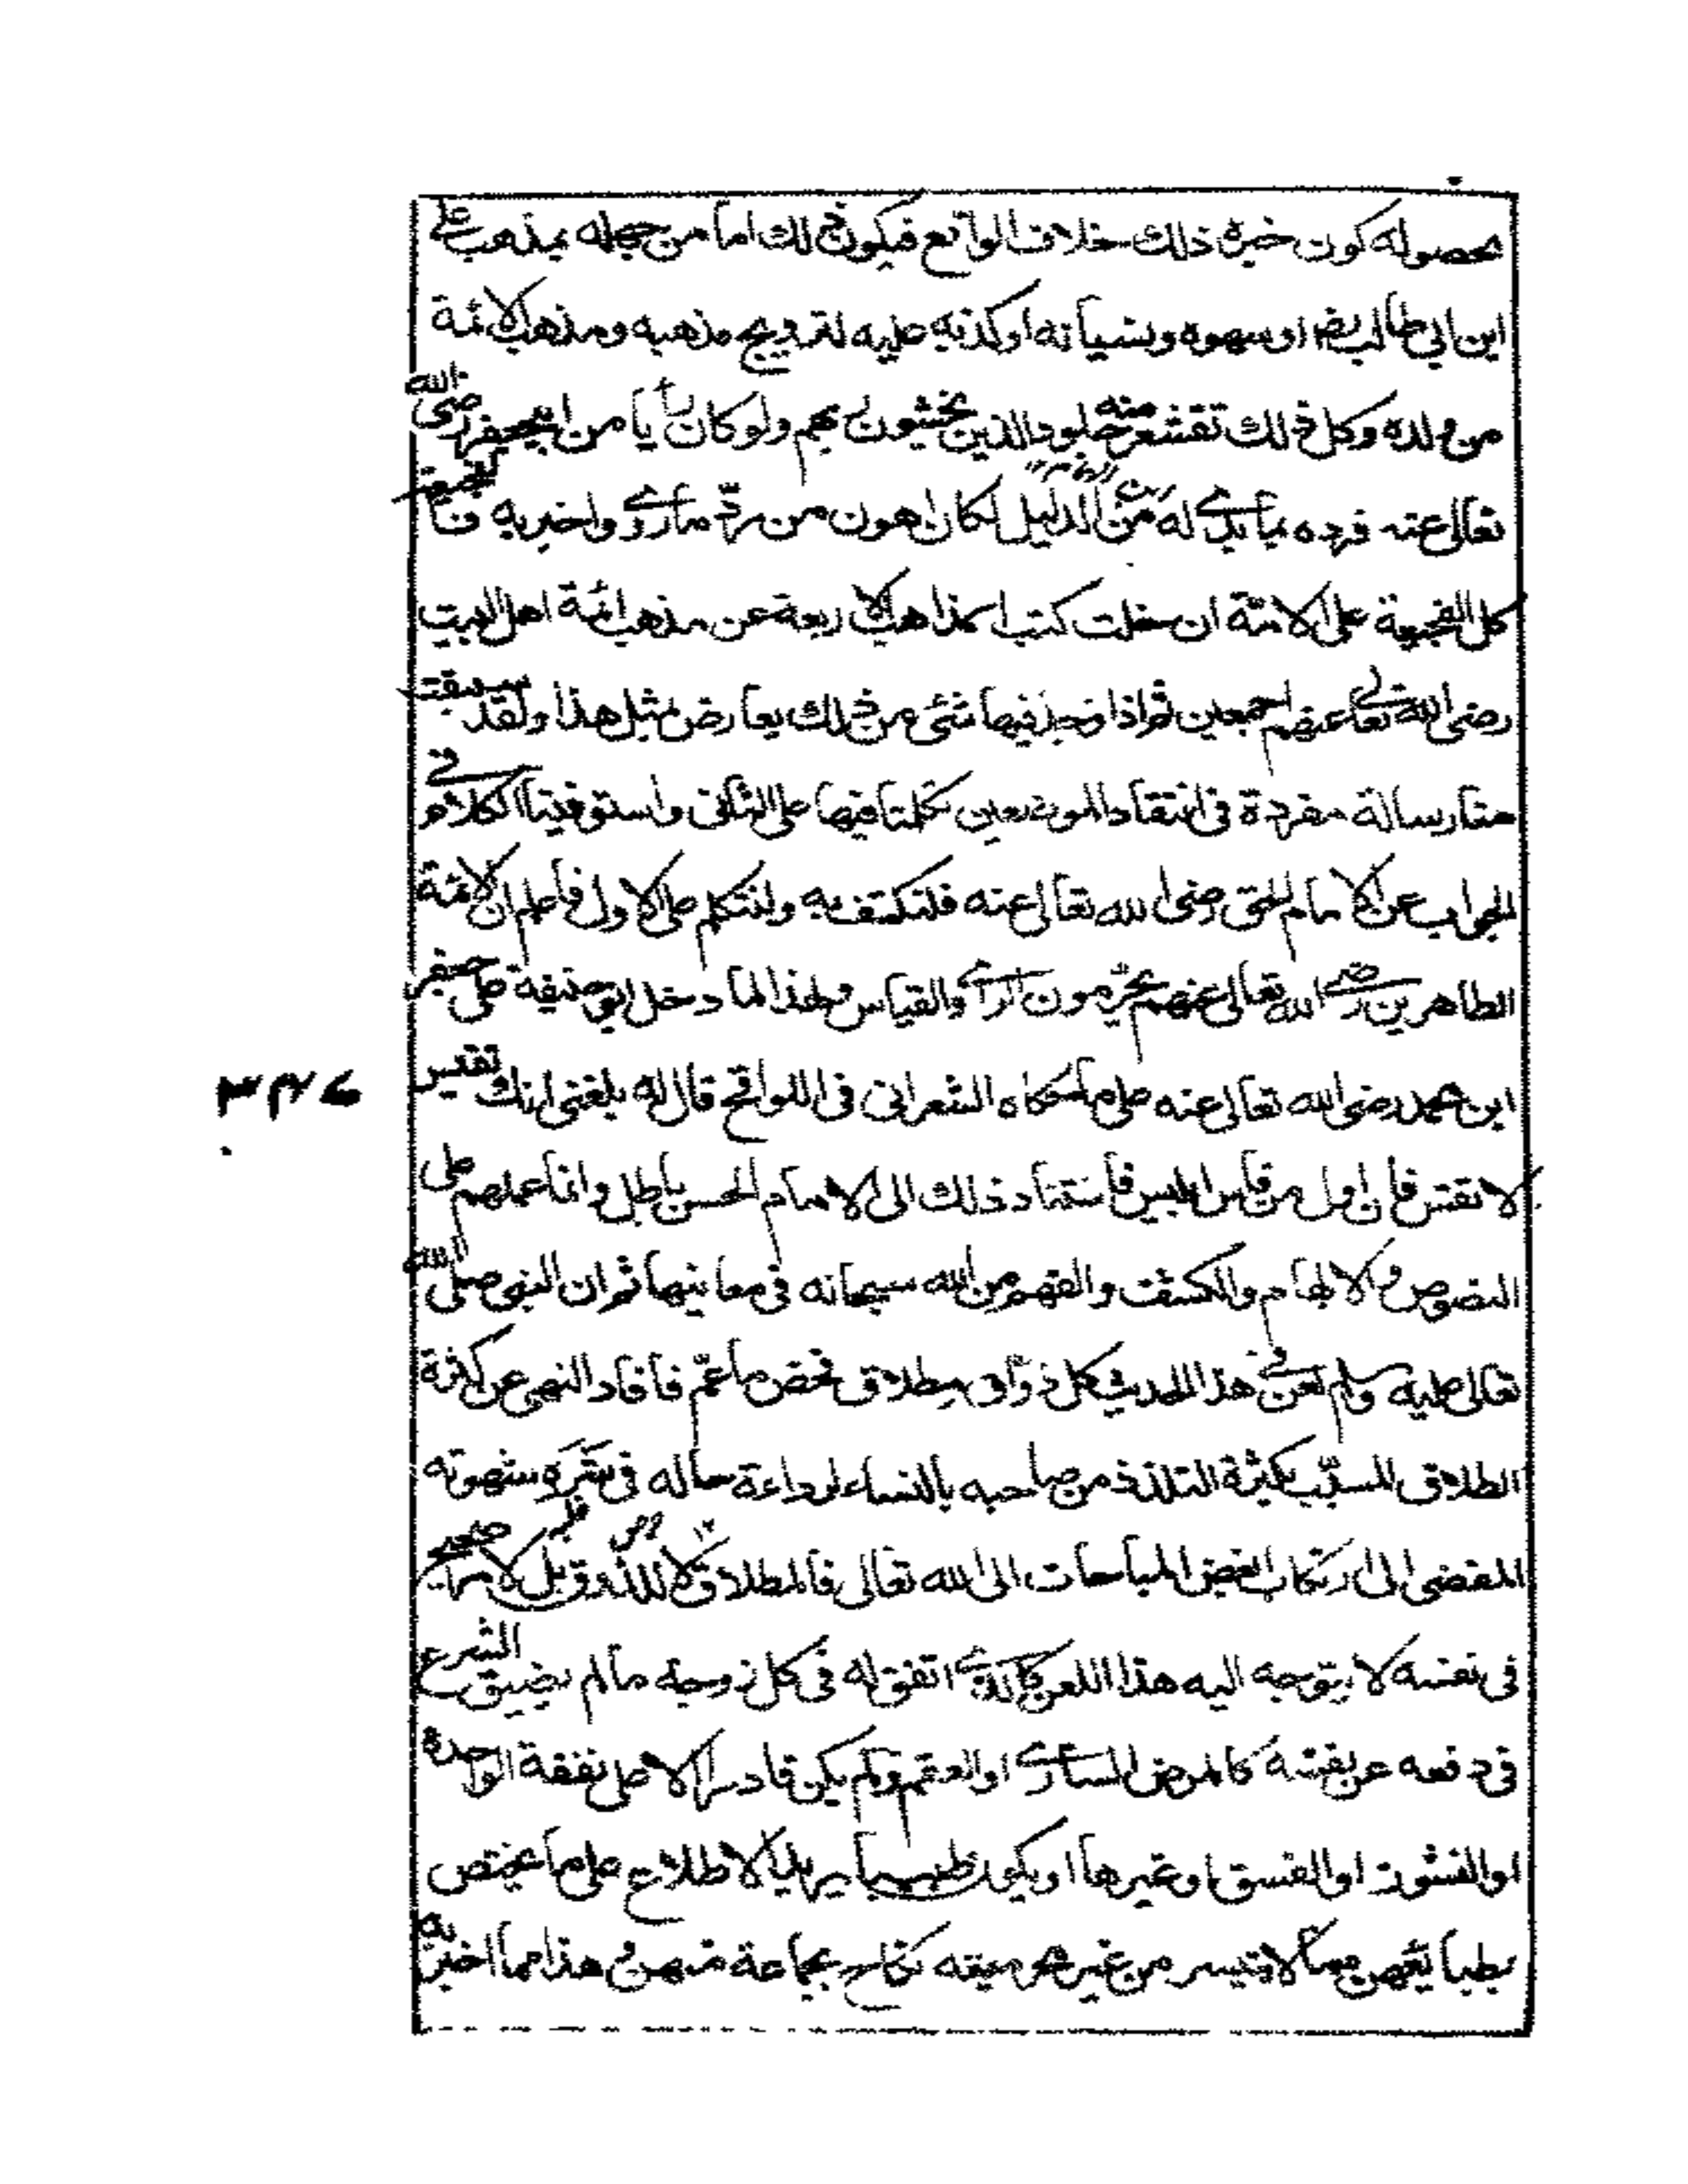 محصوله كون خبره ذلك خلاف الواقع فيكون ذلك اما من جهله بمذهب علي
ابن ابي طالب رض او سهوه ونسيانه او كذبه عليه لترويج مذهبه ومذهب الائمة
من ولده وكل ذلك تقشعر منه جلود الذين يخشون ربهم ولو كان رأيا من ابي جعفر رضى الله
تعالى عنه فرده بما بدى له من الدليل لكان اهون من رد ما روى واخبر به فالفجيعة
كل الفجيعة على الامة ان خلت كتب المذاهب الاربعة عن مذهب ائمة اهل البيت
رضى الله تعالى عنهم اجمعين ثم اذا وجد فيها شئ من ذلك يعارض بمثل هذا ولقد سبقت
منا رسالة مفردة فى انتقاد الموضعين تكلمنا فيها على الثانى واستوفينا الكلام فى
الجواب عن الامام الحق رضى الله تعالى عنه فلنكتف به ولنتكلم على الاول فاعلم ان الائمة
الطاهرين رضى الله تعالى عنهم يحرمون الرأى والقياس ولهذا لما دخل ابو حنيفة على جعفر
ابن محمد رضى الله تعالى عنه على ما حكاه الشعرانى فى اللواقح قال له بلغنى انك تقيس
لا تقس فان اول من قاس ابليس فاستناد ذلك الى الامام الحسن باطل وانما عملهم على
النصوص والالهام والكشف والفهم من الله سبحانه فى معانيها ثم ان النبى صلى الله
تعالى عليه وسلم لعن فى هذا الحديث كل ذواق مطلاق فخص ما عم فافاد النهى عن كثرة
الطلاق المسبب بكثرة التلذذ من صاحبه بالنساء لرداءة حاله فى شره شهوته
المفضى الى ارتكاب ابغض المباحات الى الله تعالى فالمطلاق لا للذوق بل لامر صحيح
فى نفسه لا يتوجه اليه هذا اللعن كالذى اتفق له فى كل زوجة ما لم يضيق الشرع
فى دفعه عن نفسه كالمرض السارى او العقم ولم يكن قادرا الا على نفقة الواحدة
او النشوز او الفسق او غيرها او يكون طبيبا يريد الاطلاع على ما يختص
بطبائعهن مما لا تيسر من غير محرميته نكاح بجماعة منهن هذا مما اخبر به
٣٤٦